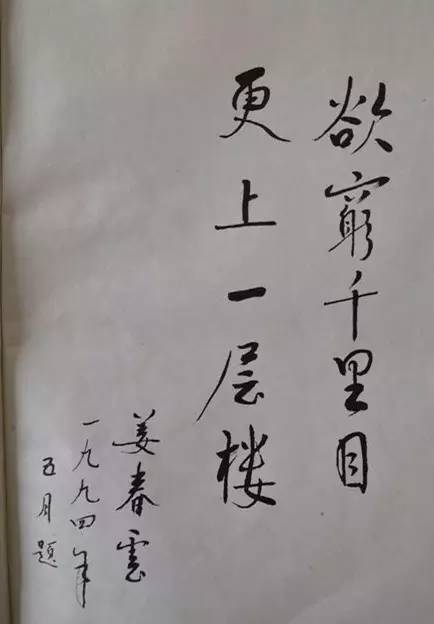 欲窮千里目
更上一层楼
姜春雲
一九九四年
五月題